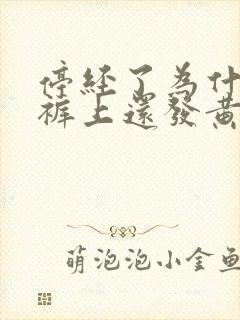 停经了为什
裤上还發黄
萌泡泡小金鱼